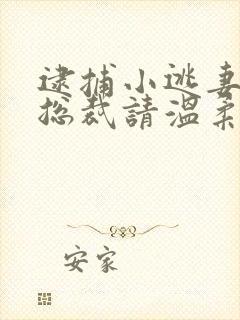 逮捕小逃妻
總裁請溫柔
安家